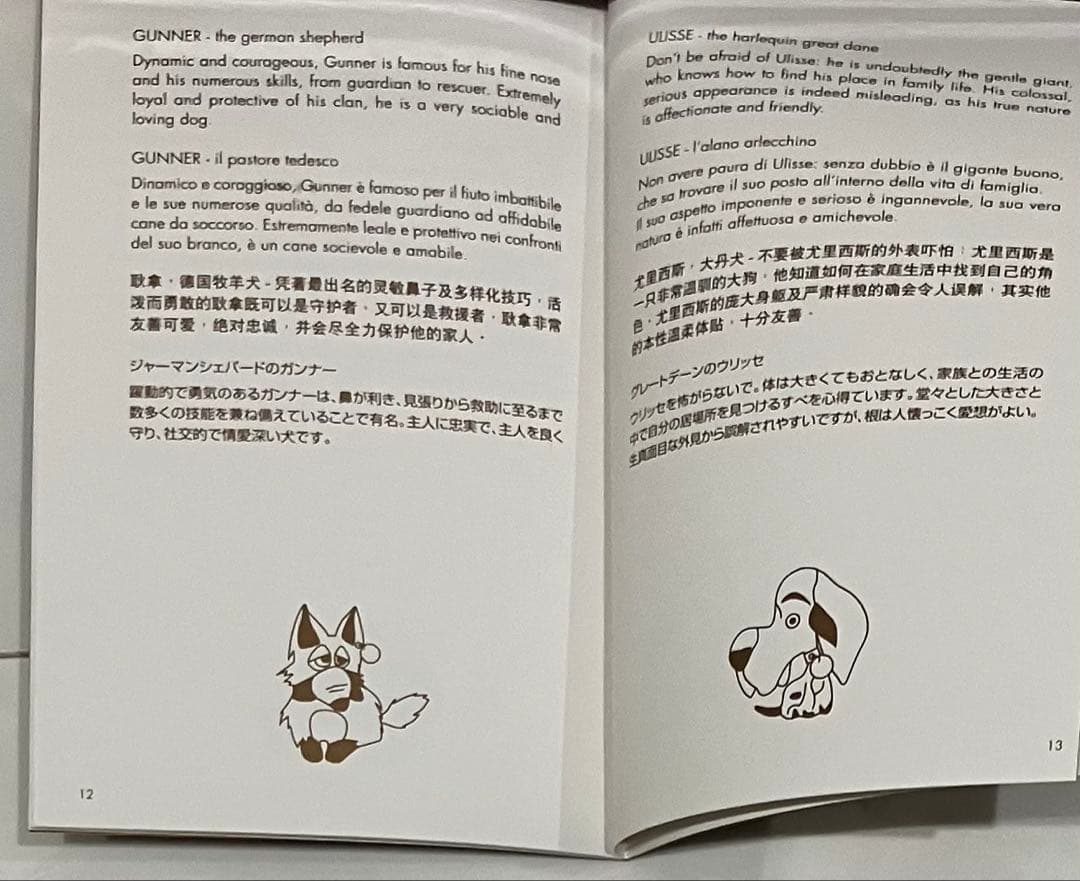 GUNNER - the german shepherd
Dynamic and courageous, Gunner is famous for his fine nose
and his numerous skills, from guardian to rescuer. Extremely
loyal and protective of his clan, he is a very sociable and
loving dog.
GUNNER - il pastore tedesco
Dinamico e coraggioso, Gunner è famoso per il fiuto imbattibile
e le sue numerose qualità, da fedele guardiano ad affidabile
cane da soccorso. Estremamente leale e protettivo nei confronti
del suo branco, è un cane socievole e amabile.
耿拿，德国牧羊犬 - 凭著最出名的灵敏鼻子及多样化技巧，活
泼而勇敢的耿拿既可以是守护者，又可以是救援者，耿拿非常
友善可爱，绝对忠诚，并会尽全力保护他的家人。
ジャーマンシェパードのガンナー
躍動的で勇気のあるガンナーは、鼻が利き、見張りから救助に至るまで
数多くの技能を兼ね備えていることで有名。主人に忠実で、主人を良く
守り、社交的で情愛深い犬です。
12
ULISSE - the harlequin great dane
Don't be afraid of Ulisse: he is undoubtedly the gentle giant,
who knows how to find his place in family life. His colossal,
serious appearance is indeed misleading, as his true nature
is affectionate and friendly.
ULISSE - l'alano arlecchino
Non avere paura di Ulisse: senza dubbio è il gigante buono,
che sa trovare il suo posto all'interno della vita di famiglia.
Il suo aspetto imponente e serioso è ingannevole, la sua vera
natura è infatti affettuosa e amichevole.
尤里西斯，大丹犬 - 不要被尤里西斯的外表吓怕：尤里西斯是
一只非常温驯的大狗，他知道如何在家庭生活中找到自己的角
色，尤里西斯的庞大身躯及严肃样貌的确会令人误解，其实他
的本性温柔体贴，十分友善。
グレートデーンのウリッセ
ウリッセを怖がらないで。体は大きくてもおとなしく、家族との生活の
中で自分の居場所を見つけるすべを心得ています。堂々とした大きさと
生真面目な外見から誤解されやすいですが、根は人懐っこく愛想がよい。
13